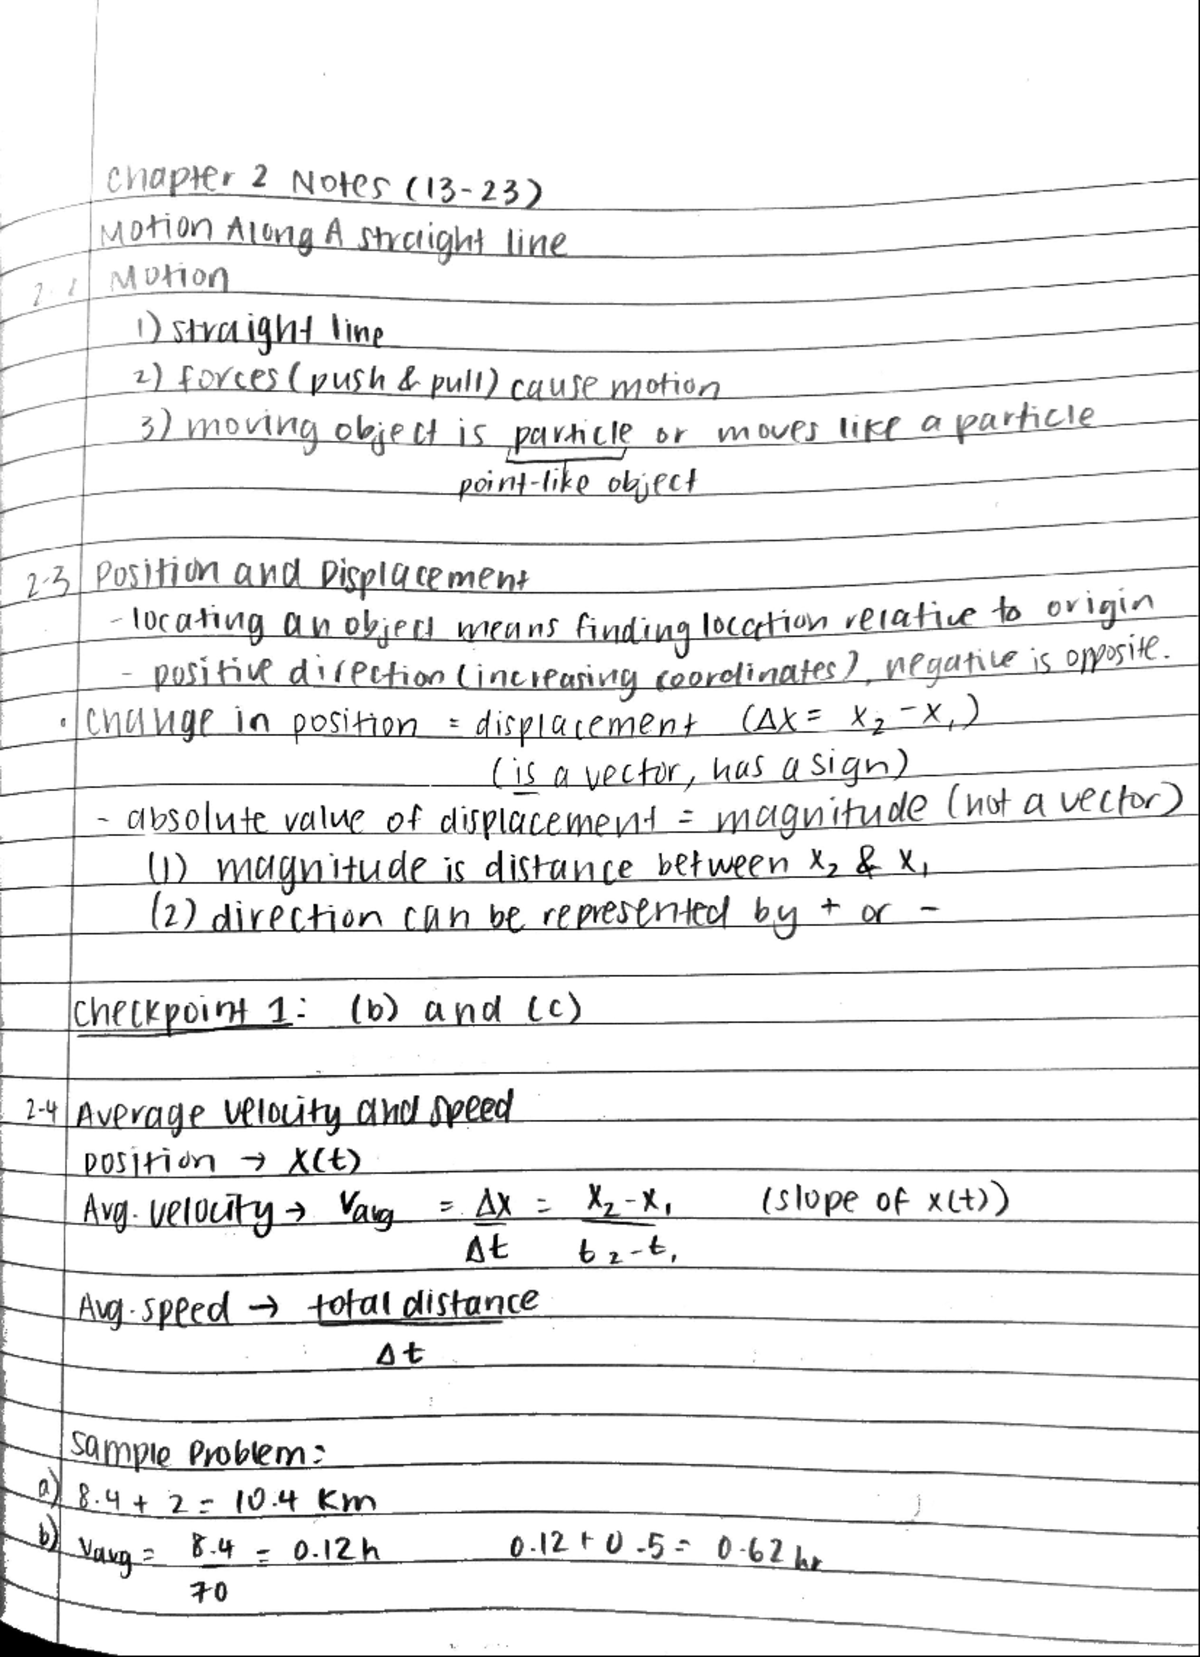 Chapter 2 Notes (13-23)
Motion Along A straight line
Motion
1) straight line
2) forces (push & pull) cause motion
3) moving object is particle or moves like a particle
point-like object
2-3 Position and Displacement
- locating an object means finding location relative to origin
- positive direction (increasing coordinates), negative is opposite.
• change in position = displacement (Δx = x₂ - x₁)
(is a vector, has a sign)
- absolute value of displacement = magnitude (not a vector)
(1) magnitude is distance between x₂ & x₁
(2) direction can be represented by + or -
Checkpoint 1: (b) and (c)
2-4 Average velocity and speed
position → x(t)
Avg. velocity → Vavg = Δx = x₂-x₁ (slope of x(t))
Δt t₂-t₁
Avg. speed → total distance
Δt
Sample Problem:
a) 8.4 + 2 = 10.4 Km
b) Vavg = 8.4 = 0.12h 0.12 + 0.5 = 0.62 hr
70